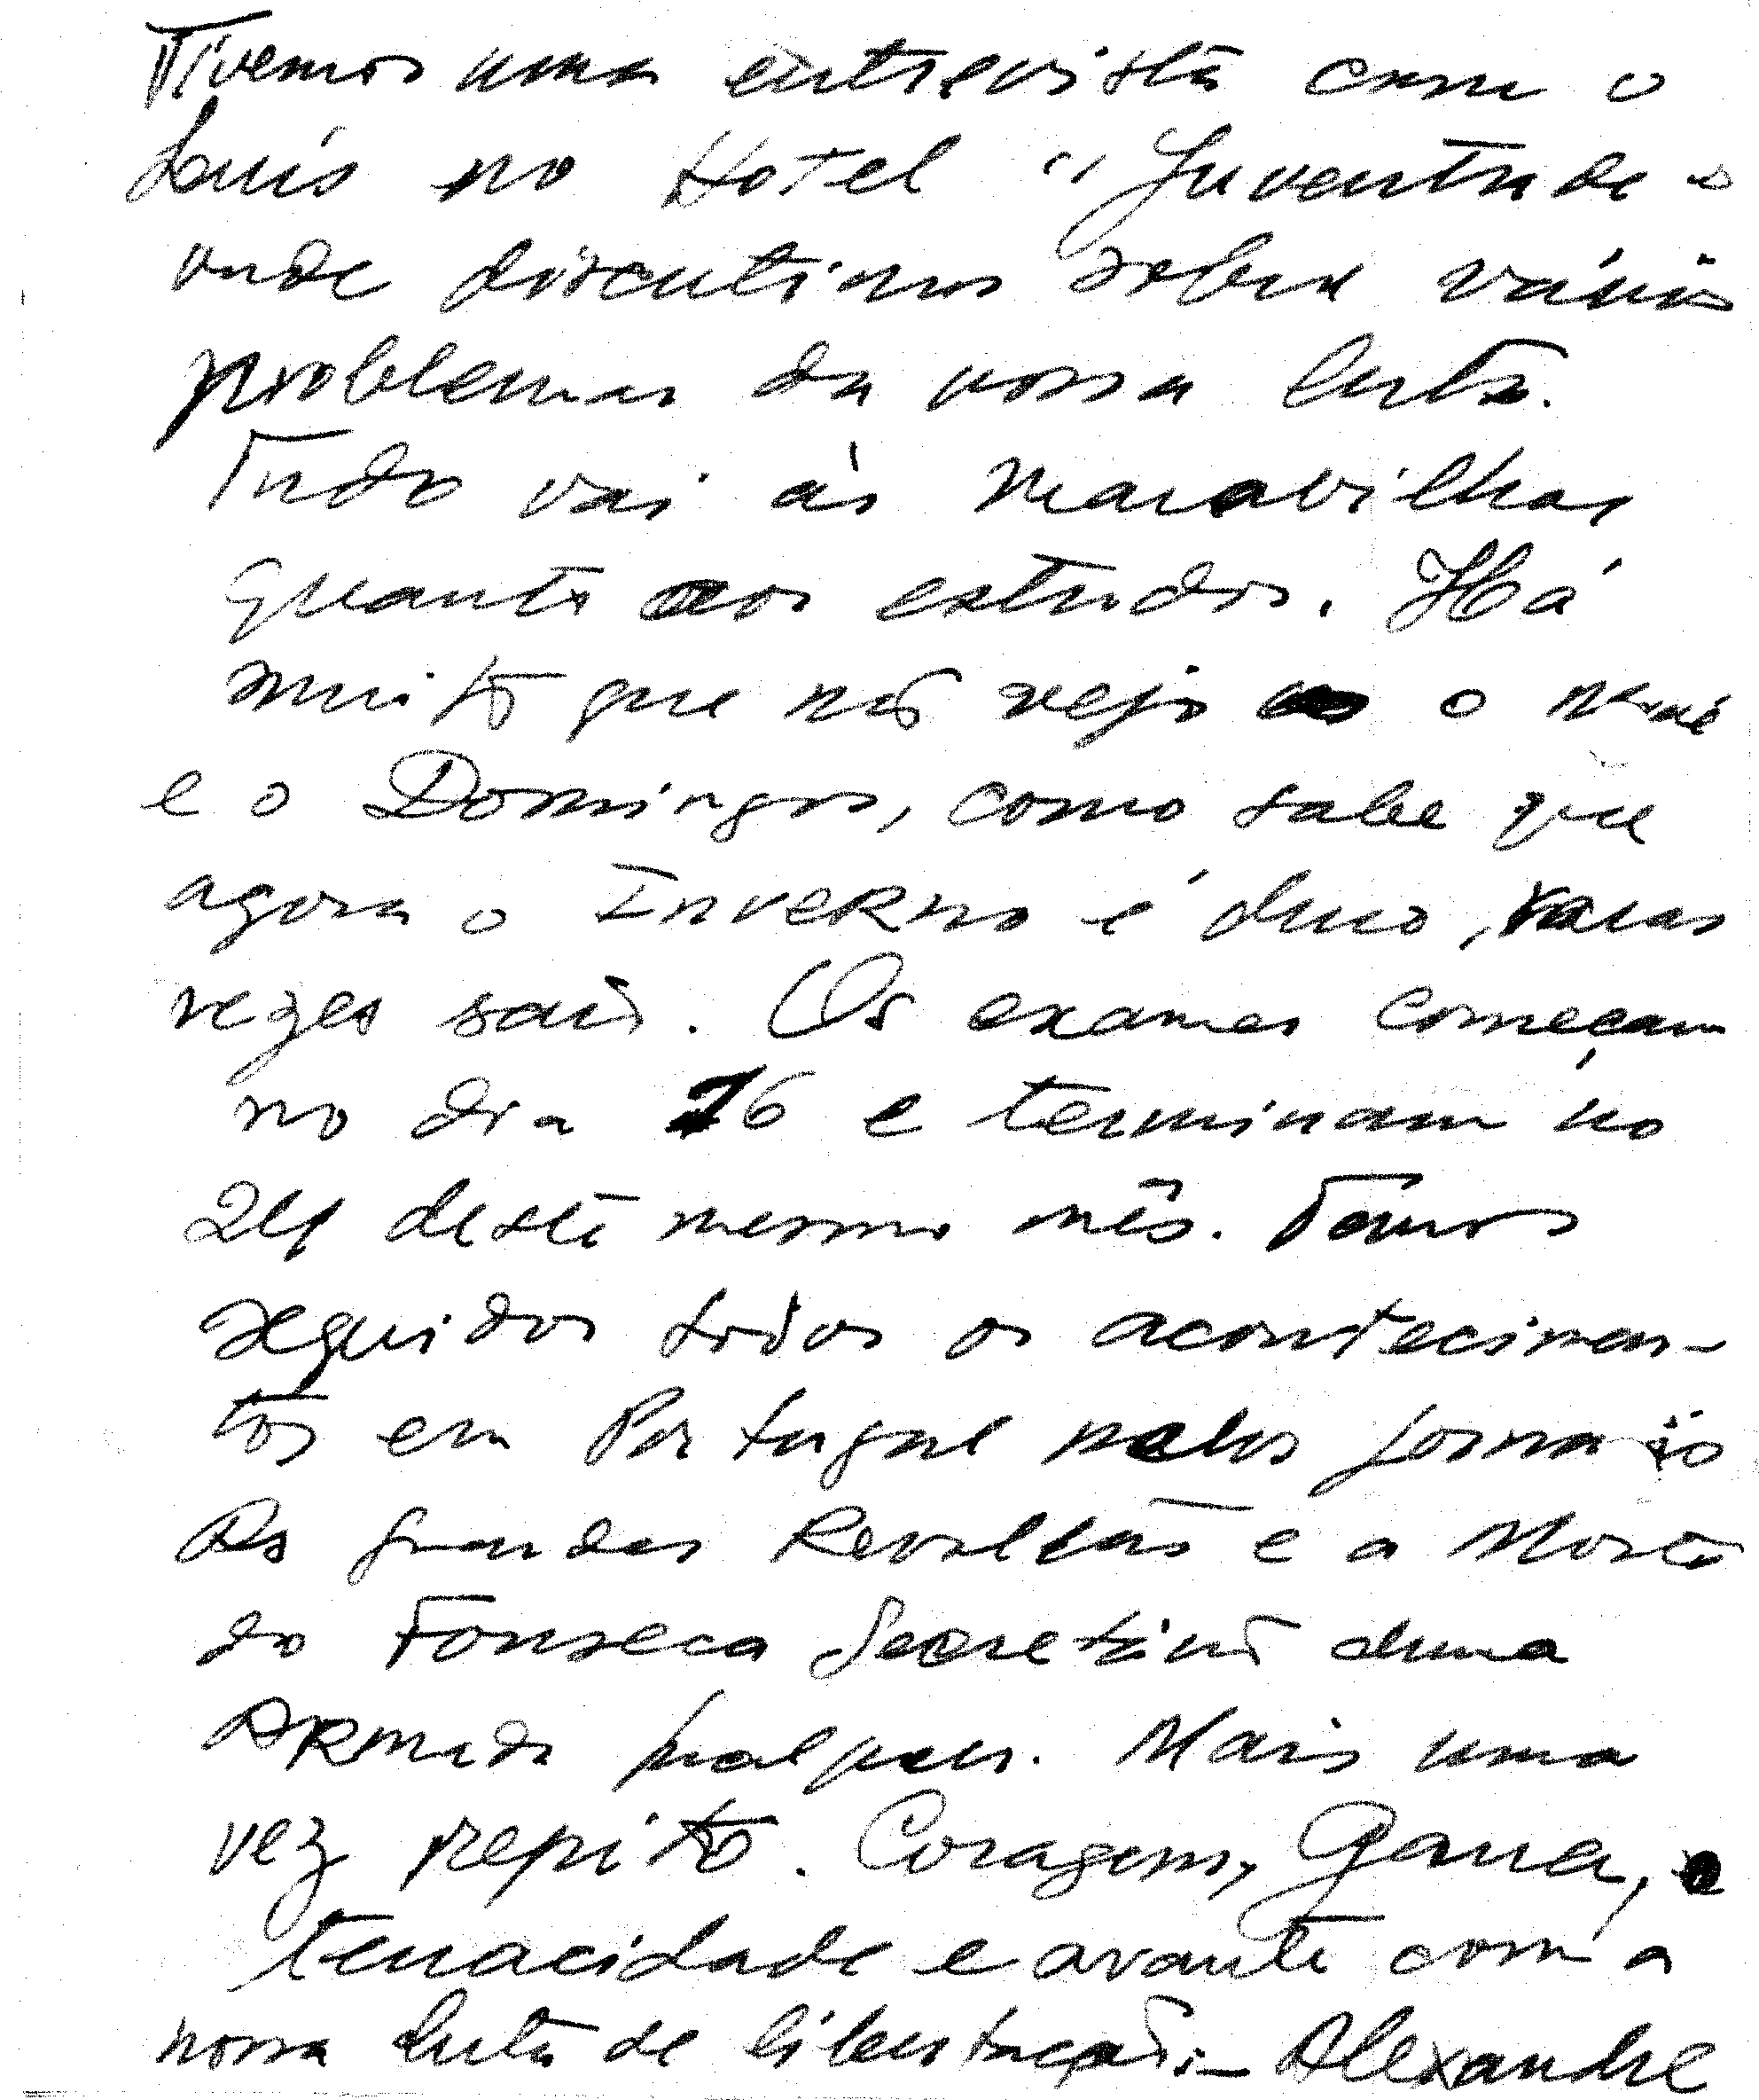 Tivemos uma entrevista com o
Luís no Hotel "Juventude"
onde discutimos sobre vários
problemas da nossa luta.
Tudo vai às maravilhas
quanto aos estudos. Há
muito que não vejo o
e o Domingos, como sabe que
agora o Inverno é duro, raras
vezes saio. Os exames começam
no dia 16 e terminam no
24 deste mesmo mês. Temos
seguidos todos os acontecimen-
tos em Portugal pelos jornais
As grandes Revoltas e a Morte
do Fonseca Secretário duma
Armada. Mais uma
vez repito. Coragem, Garra, e
tenacidade e avante com a
nossa luta de libertação:- Alexandre